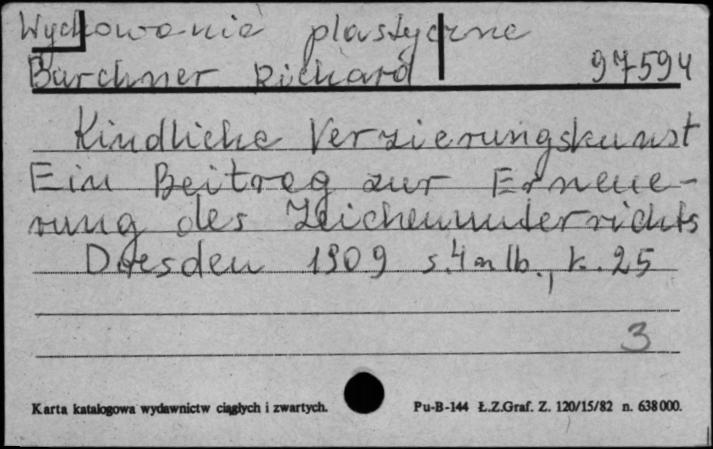 Wychowanie plastyczne
Burchner Richard 97594
Kindliche Verzierungskunst
Ein Beitrag zur Erneue-
rung des Zeichenunterrichts
Dresden 1909 s. 4 nlb., k. 25
3
Karta katalogowa wydawnictw ciągłych i zwartych. Pu-B-144 Ł.Z.Graf. Z. 120/15/82 n. 638000.